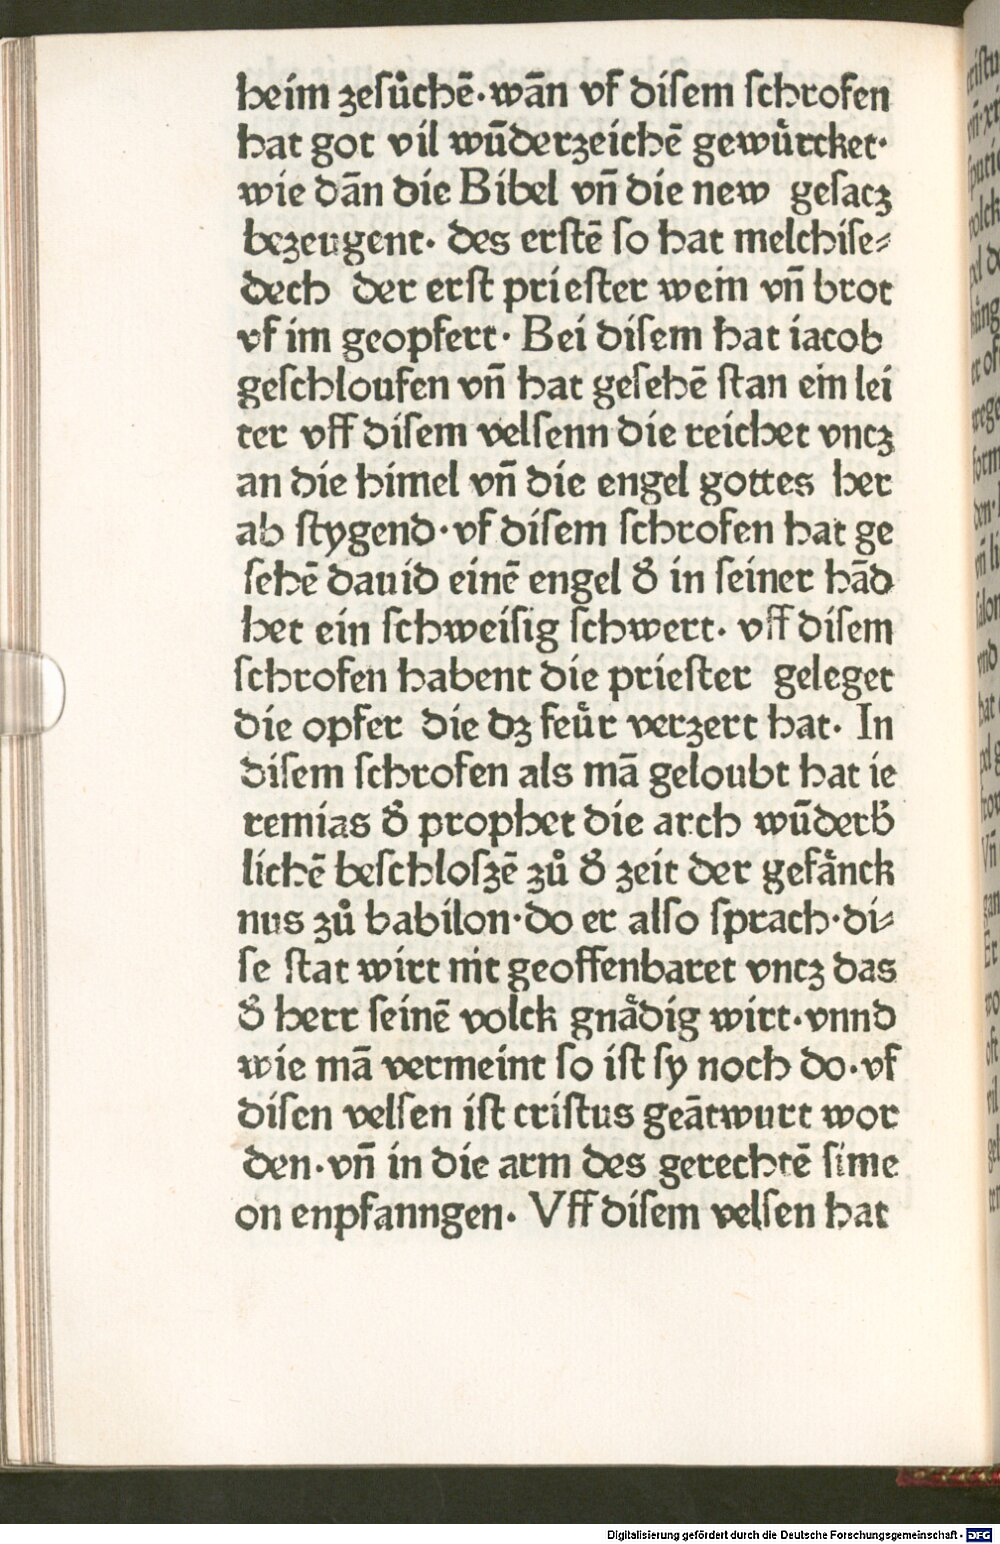 heim zesůchē·wān vf disem schrofen
hat got vil wūderzeichē gewürcket·
wie dān die Bibel vn̄ die new gesacz
bezeugent· des erstē so hat melchise⸗
dech der erst priester wein vn̄ brot
vf im geopfert· Bei disem hat iacob
geschloufen vn̄ hat gesehē stan ein lei
ter vff disem velsenn die reichet vncz
an die himel vn̄ die engel gottes her
ab stygend·vf disem schrofen hat ge
sehē dauid einē engel d̕ in seiner hād
het ein schweisig schwert· vff disem
schrofen habent die priester geleget
die opfer die dz feür verzert hat· In
disem schrofen als mā geloubt hat ie
remias d̕ prophet die arch wūderb̕
lichē beschloszē zů d̕ zeit der gefänck
nus zů babilon·do er also sprach·di⸗
se stat wirt nit geoffenbaret vncz das
d̕ herr seinē volck gnädig wirt·vnnd
wie mā vermeint so ist sy noch do·vf
disen velsen ist cristus geātwurt wor
den·vn̄ in die arm des gerechtē sime
on enpfanngen· Vff disem velsen hat
Digitalisierung gefördert durch die Deutsche Forschungsgemeinschaft - DFG